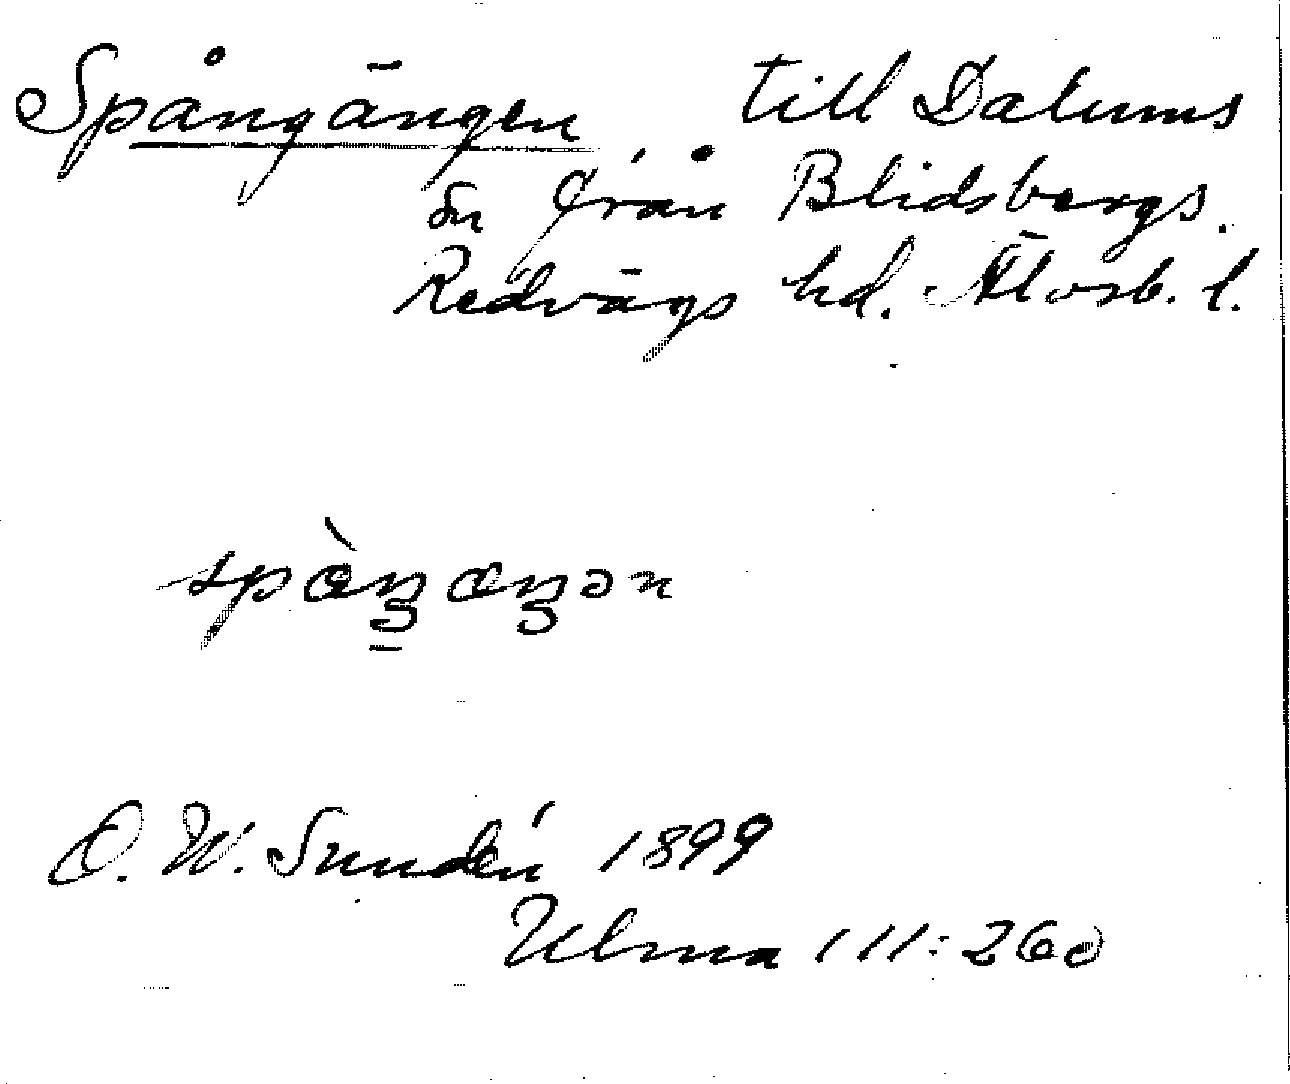 Spångängen till Dalums
sn från Blidsbergs.
Redvägs hd. Älvsb. l.
spàŋæŋən
O. W. Sundén 1899
Ulma 111:260